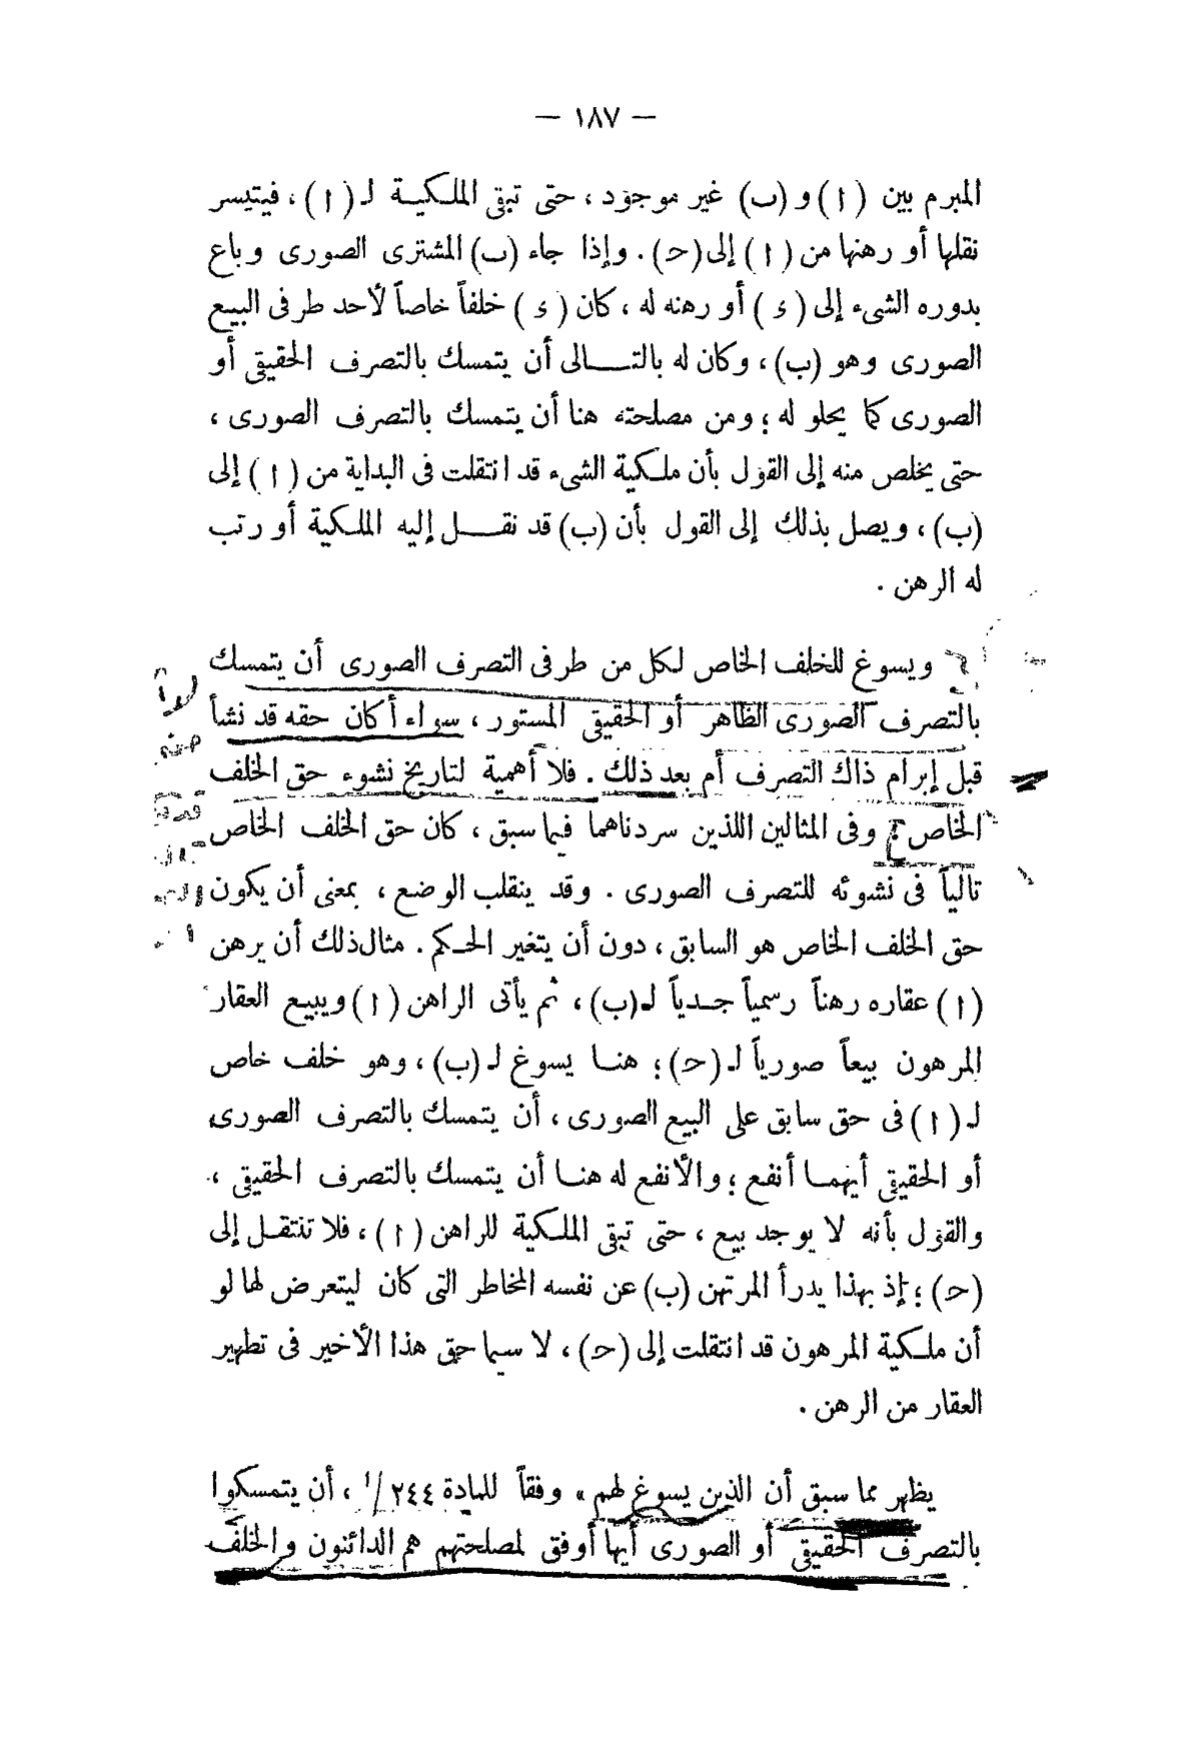 — ١٨٧ —
المبرم بين ( ا ) و (ب) غير موجود ، حتى تبقى الملكية لـ ( ا ) ، فيتيسر
نقلها أو رهنها من ( ا ) إلى (حـ) . وإذا جاء (ب) المشترى الصورى وباع
بدوره الشىء إلى ( ء ) أو رهنه له ، كان ( ء ) خلفاً خاصاً لأحد طرفى البيع
الصورى وهو (ب) ، وكان له بالتالى أن يتمسك بالتصرف الحقيقى أو
الصورى كما يحلو له ؛ ومن مصلحته هنا أن يتمسك بالتصرف الصورى ،
حتى يخلص منه إلى القول بأن ملكية الشىء قد انتقلت فى البداية من ( ا ) إلى
(ب) ، ويصل بذلك إلى القول بأن (ب) قد نقل إليه الملكية أو رتب
له الرهن .
ويسوغ للخلف الخاص لكل من طرفى التصرف الصورى أن يتمسك
بالتصرف الصورى الظاهر أو الحقيقى المستور ، سواء أكان حقه قد نشأ
قبل إبرام ذاك التصرف أم بعد ذلك . فلا أهمية لتاريخ نشوء حق الخلف
الخاص . وفى المثالين اللذين سردناهما فيما سبق ، كان حق الخلف الخاص
تالياً فى نشوئه للتصرف الصورى . وقد ينقلب الوضع ، بمعنى أن يكون
حق الخلف الخاص هو السابق ، دون أن يتغير الحكم . مثال ذلك أن يرهن
( ا ) عقاره رهناً رسمياً جدياً لـ (ب) ، ثم يأتى الراهن ( ا ) ويبيع العقار
المرهون بيعاً صورياً لـ (حـ) ؛ هنا يسوغ لـ (ب) ، وهو خلف خاص
لـ ( ا ) فى حق سابق على البيع الصورى ، أن يتمسك بالتصرف الصورى
أو الحقيقى أيهما أنفع ؛ والأنفع له هنا أن يتمسك بالتصرف الحقيقى ،
والقول بأنه لا يوجد بيع ، حتى تبقى الملكية للراهن ( ا ) ، فلا تنتقل إلى
(حـ) ؛ إذ بهذا يدرأ المرتهن (ب) عن نفسه المخاطر التى كان ليتعرض لها لو
أن ملكية المرهون قد انتقلت إلى (حـ) ، لا سيما حق هذا الأخير فى تطهير
العقار من الرهن .
يظهر مما سبق أن الذين يسوغ لهم ، وفقاً للمادة ٢٤٤/١ ، أن يتمسكوا
بالتصرف الحقيقى أو الصورى أيها أوفق لمصلحتهم هم الدائنون والخلف